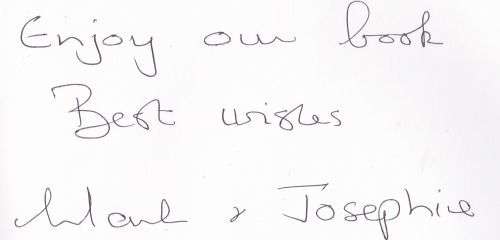 Enjoy our book
Best wishes
Mark & Josephine